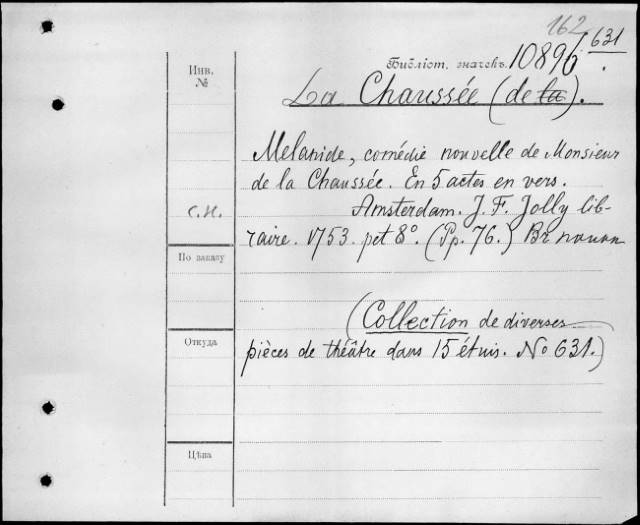 162
Библіот. значекъ. 10896 631.
Инв.
№
La Chaussée (de la).
Melanide, comédie nouvelle de Monsieur
de la Chaussée. En 5 actes en vers.
С.П. Amsterdam. J. F. Jolly lib-
raire. 1753. pet 8°. (Pp. 76.)
По заказу
(Collection de diverses
Откуда
pièces de théâtre dans 15 étuis. No 631.)
Цѣна